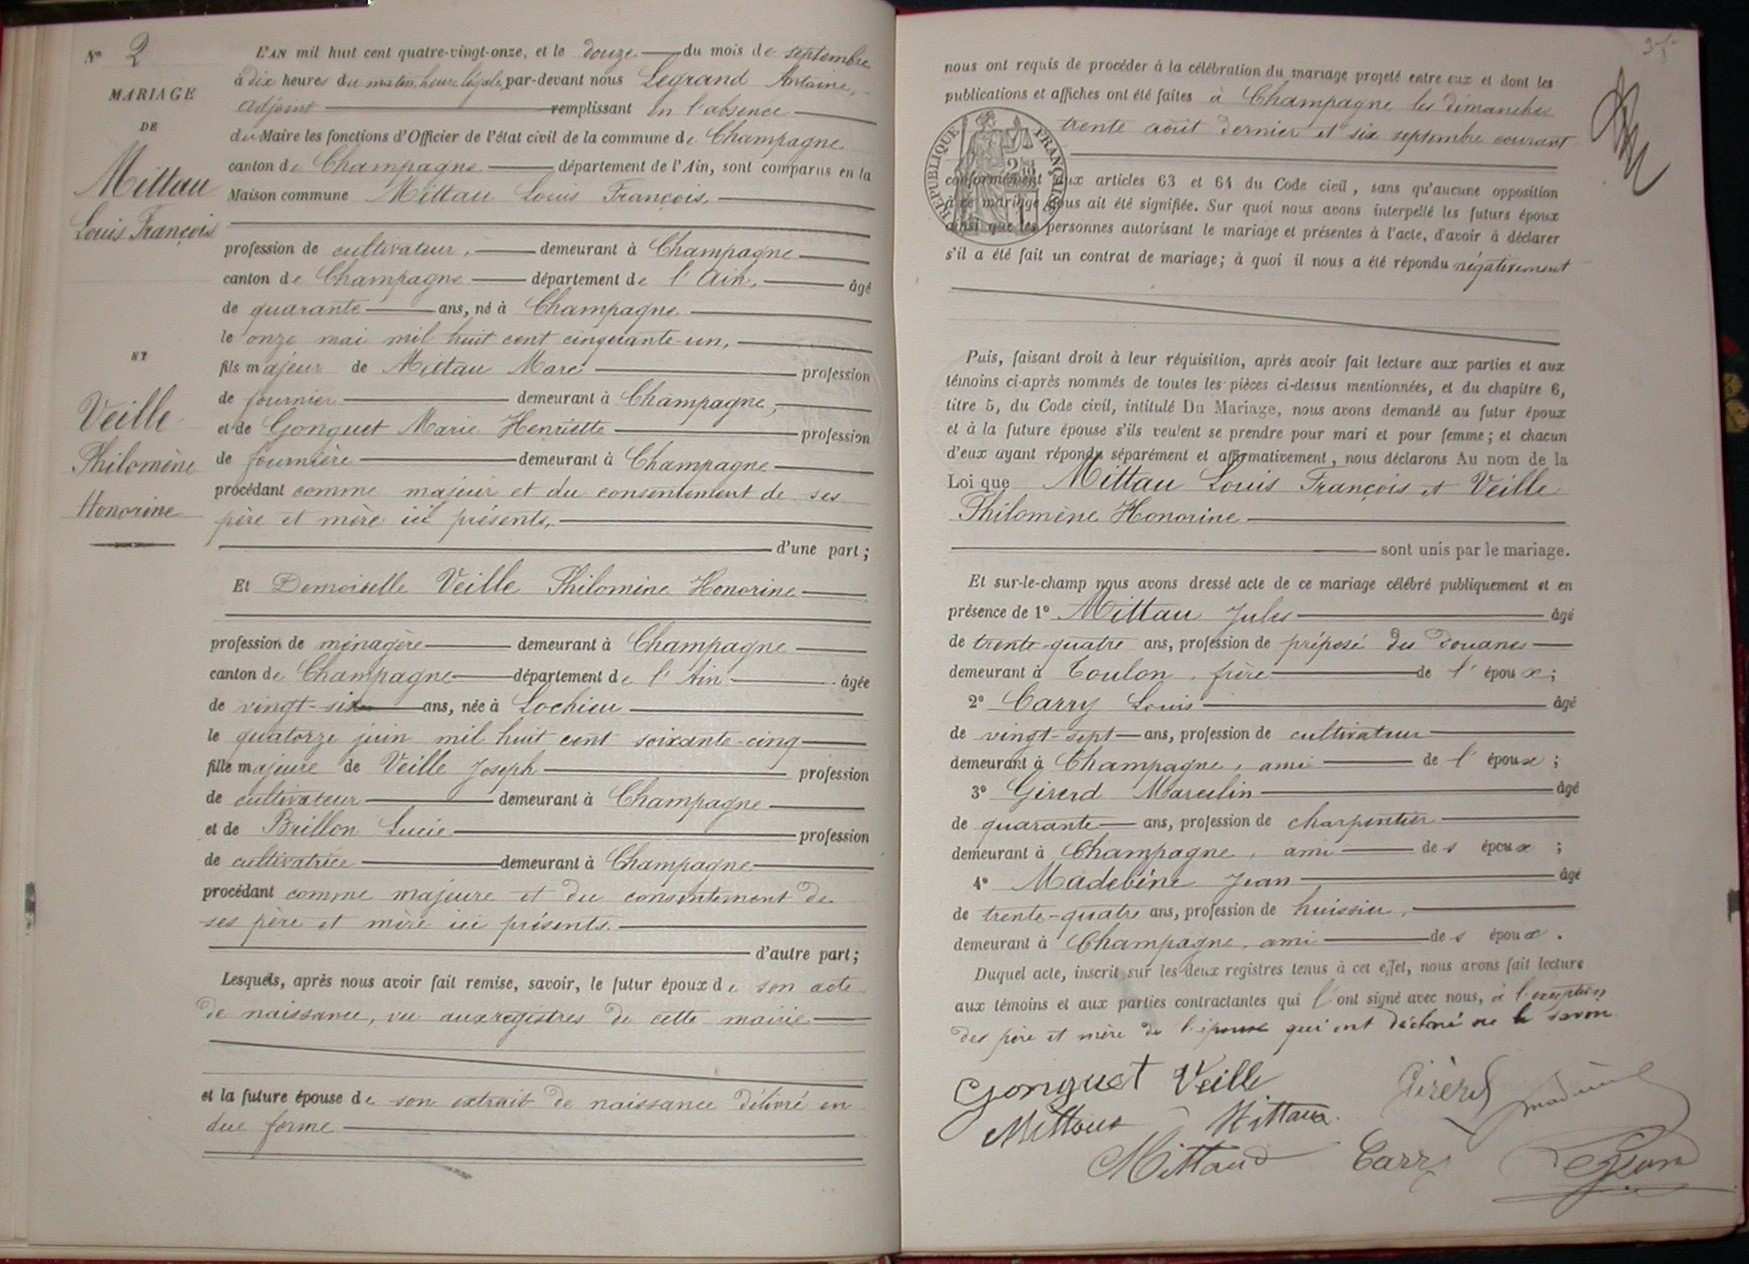 N° 2
MARIAGE
DE
Mittau
Louis François
ET
Veille
Philomène
Honorine
L'AN mil huit cent quatre-vingt-onze, et le douze du mois de septembre
à dix heures du matin, heure légale, par-devant nous Legrand Antoine,
adjoint remplissant en l'absence
du Maire les fonctions d'Officier de l'état civil de la commune de Champagne
canton de Champagne département de l'Ain, sont comparus en la
Maison commune Mittau Louis François,
profession de cultivateur, demeurant à Champagne
canton de Champagne département de l'Ain, âgé
de quarante ans, né à Champagne
le onze mai mil huit cent cinquante-un,
fils majeur de Mittau Marc profession
de fournier demeurant à Champagne,
et de Gonguet Marie Henriette profession
de fournière demeurant à Champagne
procédant comme majeur et du consentement de ses
père et mère ici présents,
d'une part;
Et Demoiselle Veille Philomène Honorine
profession de ménagère demeurant à Champagne
canton de Champagne département de l'Ain âgée
de vingt-six ans, née à Lochieu
le quatorze juin mil huit cent soixante-cinq
fille majeure de Veille Joseph profession
de cultivateur demeurant à Champagne
et de Brillon Lucie profession
de cultivatrice demeurant à Champagne
procédant comme majeure et du consentement de
ses père et mère ici présents.
d'autre part;
Lesquels, après nous avoir fait remise, savoir, le futur époux de son acte
de naissance, vu aux registres de cette mairie
et la future épouse de son extrait de naissance délivré en
due forme
nous ont requis de procéder à la célébration du mariage projeté entre eux et dont les
publications et affiches ont été faites à Champagne les dimanches
trente août dernier et six septembre courant
RÉPUBLIQUE FRANÇAISE
conformément aux articles 63 et 64 du Code civil, sans qu'aucune opposition
à ce mariage nous ait été signifiée. Sur quoi nous avons interpellé les futurs époux
ainsi que les personnes autorisant le mariage et présentes à l'acte, d'avoir à déclarer
s'il a été fait un contrat de mariage; à quoi il nous a été répondu négativement
Puis, faisant droit à leur réquisition, après avoir fait lecture aux parties et aux
témoins ci-après nommés de toutes les pièces ci-dessus mentionnées, et du chapitre 6,
titre 5, du Code civil, intitulé Du Mariage, nous avons demandé au futur époux
et à la future épouse s'ils veulent se prendre pour mari et pour femme; et chacun
d'eux ayant répondu séparément et affirmativement, nous déclarons Au nom de la
Loi que Mittau Louis François et Veille
Philomène Honorine
sont unis par le mariage.
Et sur-le-champ nous avons dressé acte de ce mariage célébré publiquement et en
présence de 1° Mittau Jules âgé
de trente-quatre ans, profession de préposé des douanes
demeurant à Toulon, frère de l'époux;
2° Carry Louis âgé
de vingt-sept ans, profession de cultivateur
demeurant à Champagne, ami de l'époux;
3° Girerd Marcelin âgé
de quarante ans, profession de charpentier
demeurant à Champagne, ami des époux;
4° Madebéne Jean âgé
de trente-quatre ans, profession de huissier,
demeurant à Champagne, ami des époux.
Duquel acte, inscrit sur les deux registres tenus à cet effet, nous avons fait lecture
aux témoins et aux parties contractantes qui l'ont signé avec nous, à l'exception
des père et mère de l'épouse qui ont déclaré ne le savoir
Gonguet Veille Girerd
Mittau Mittau
Mittaud Carry